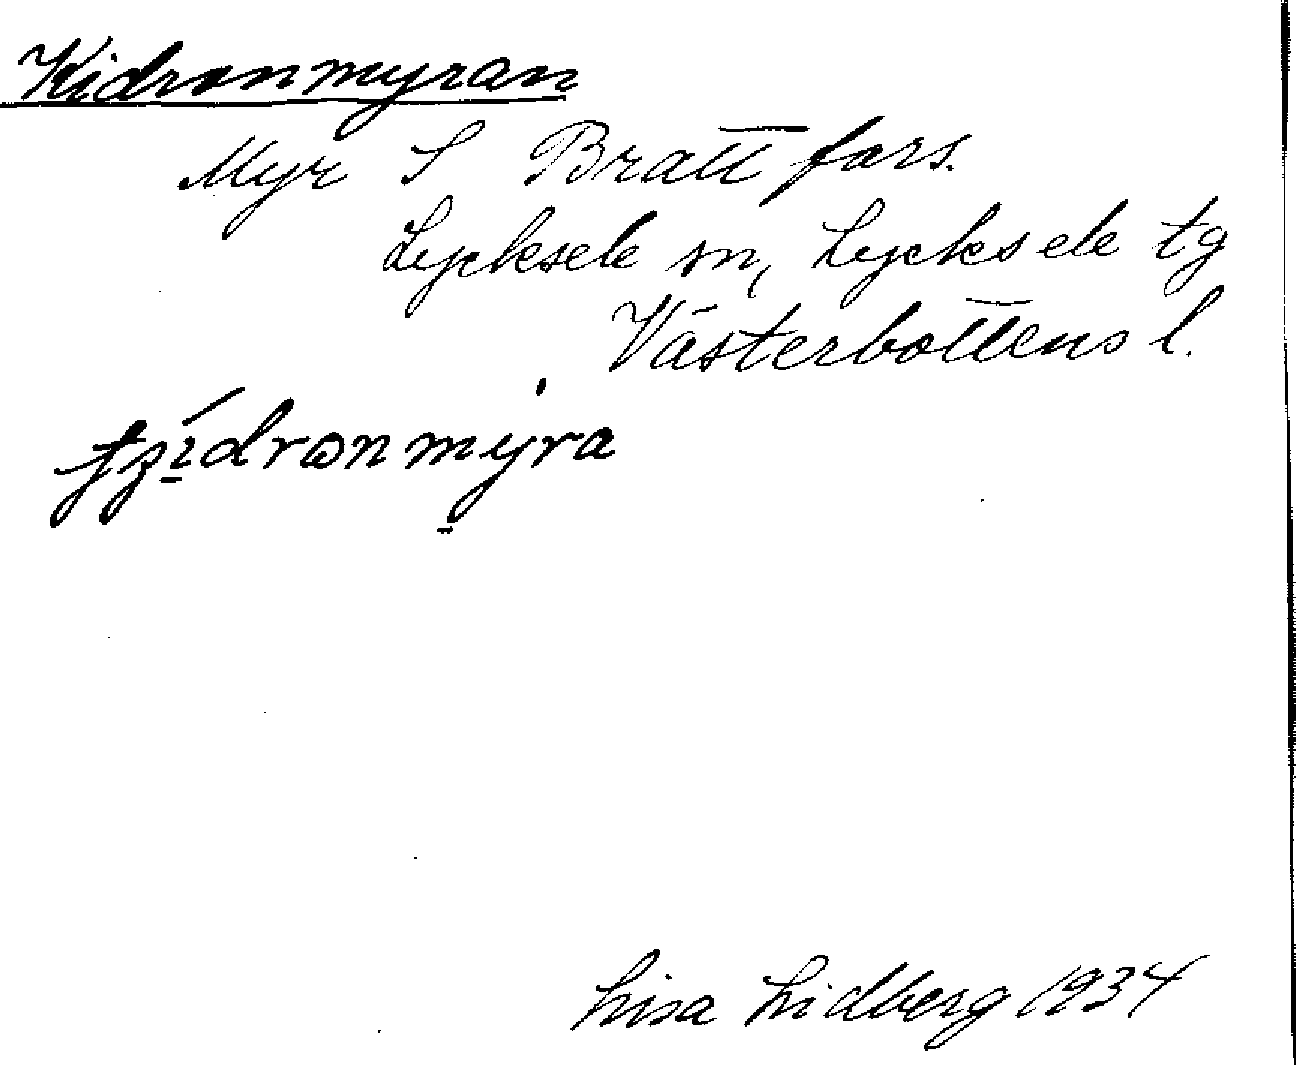 Kidronmyran
Myr S Brattfors.
Lycksele sn, Lycksele tg
Västerbottens l.
Lisa Lidberg 1934